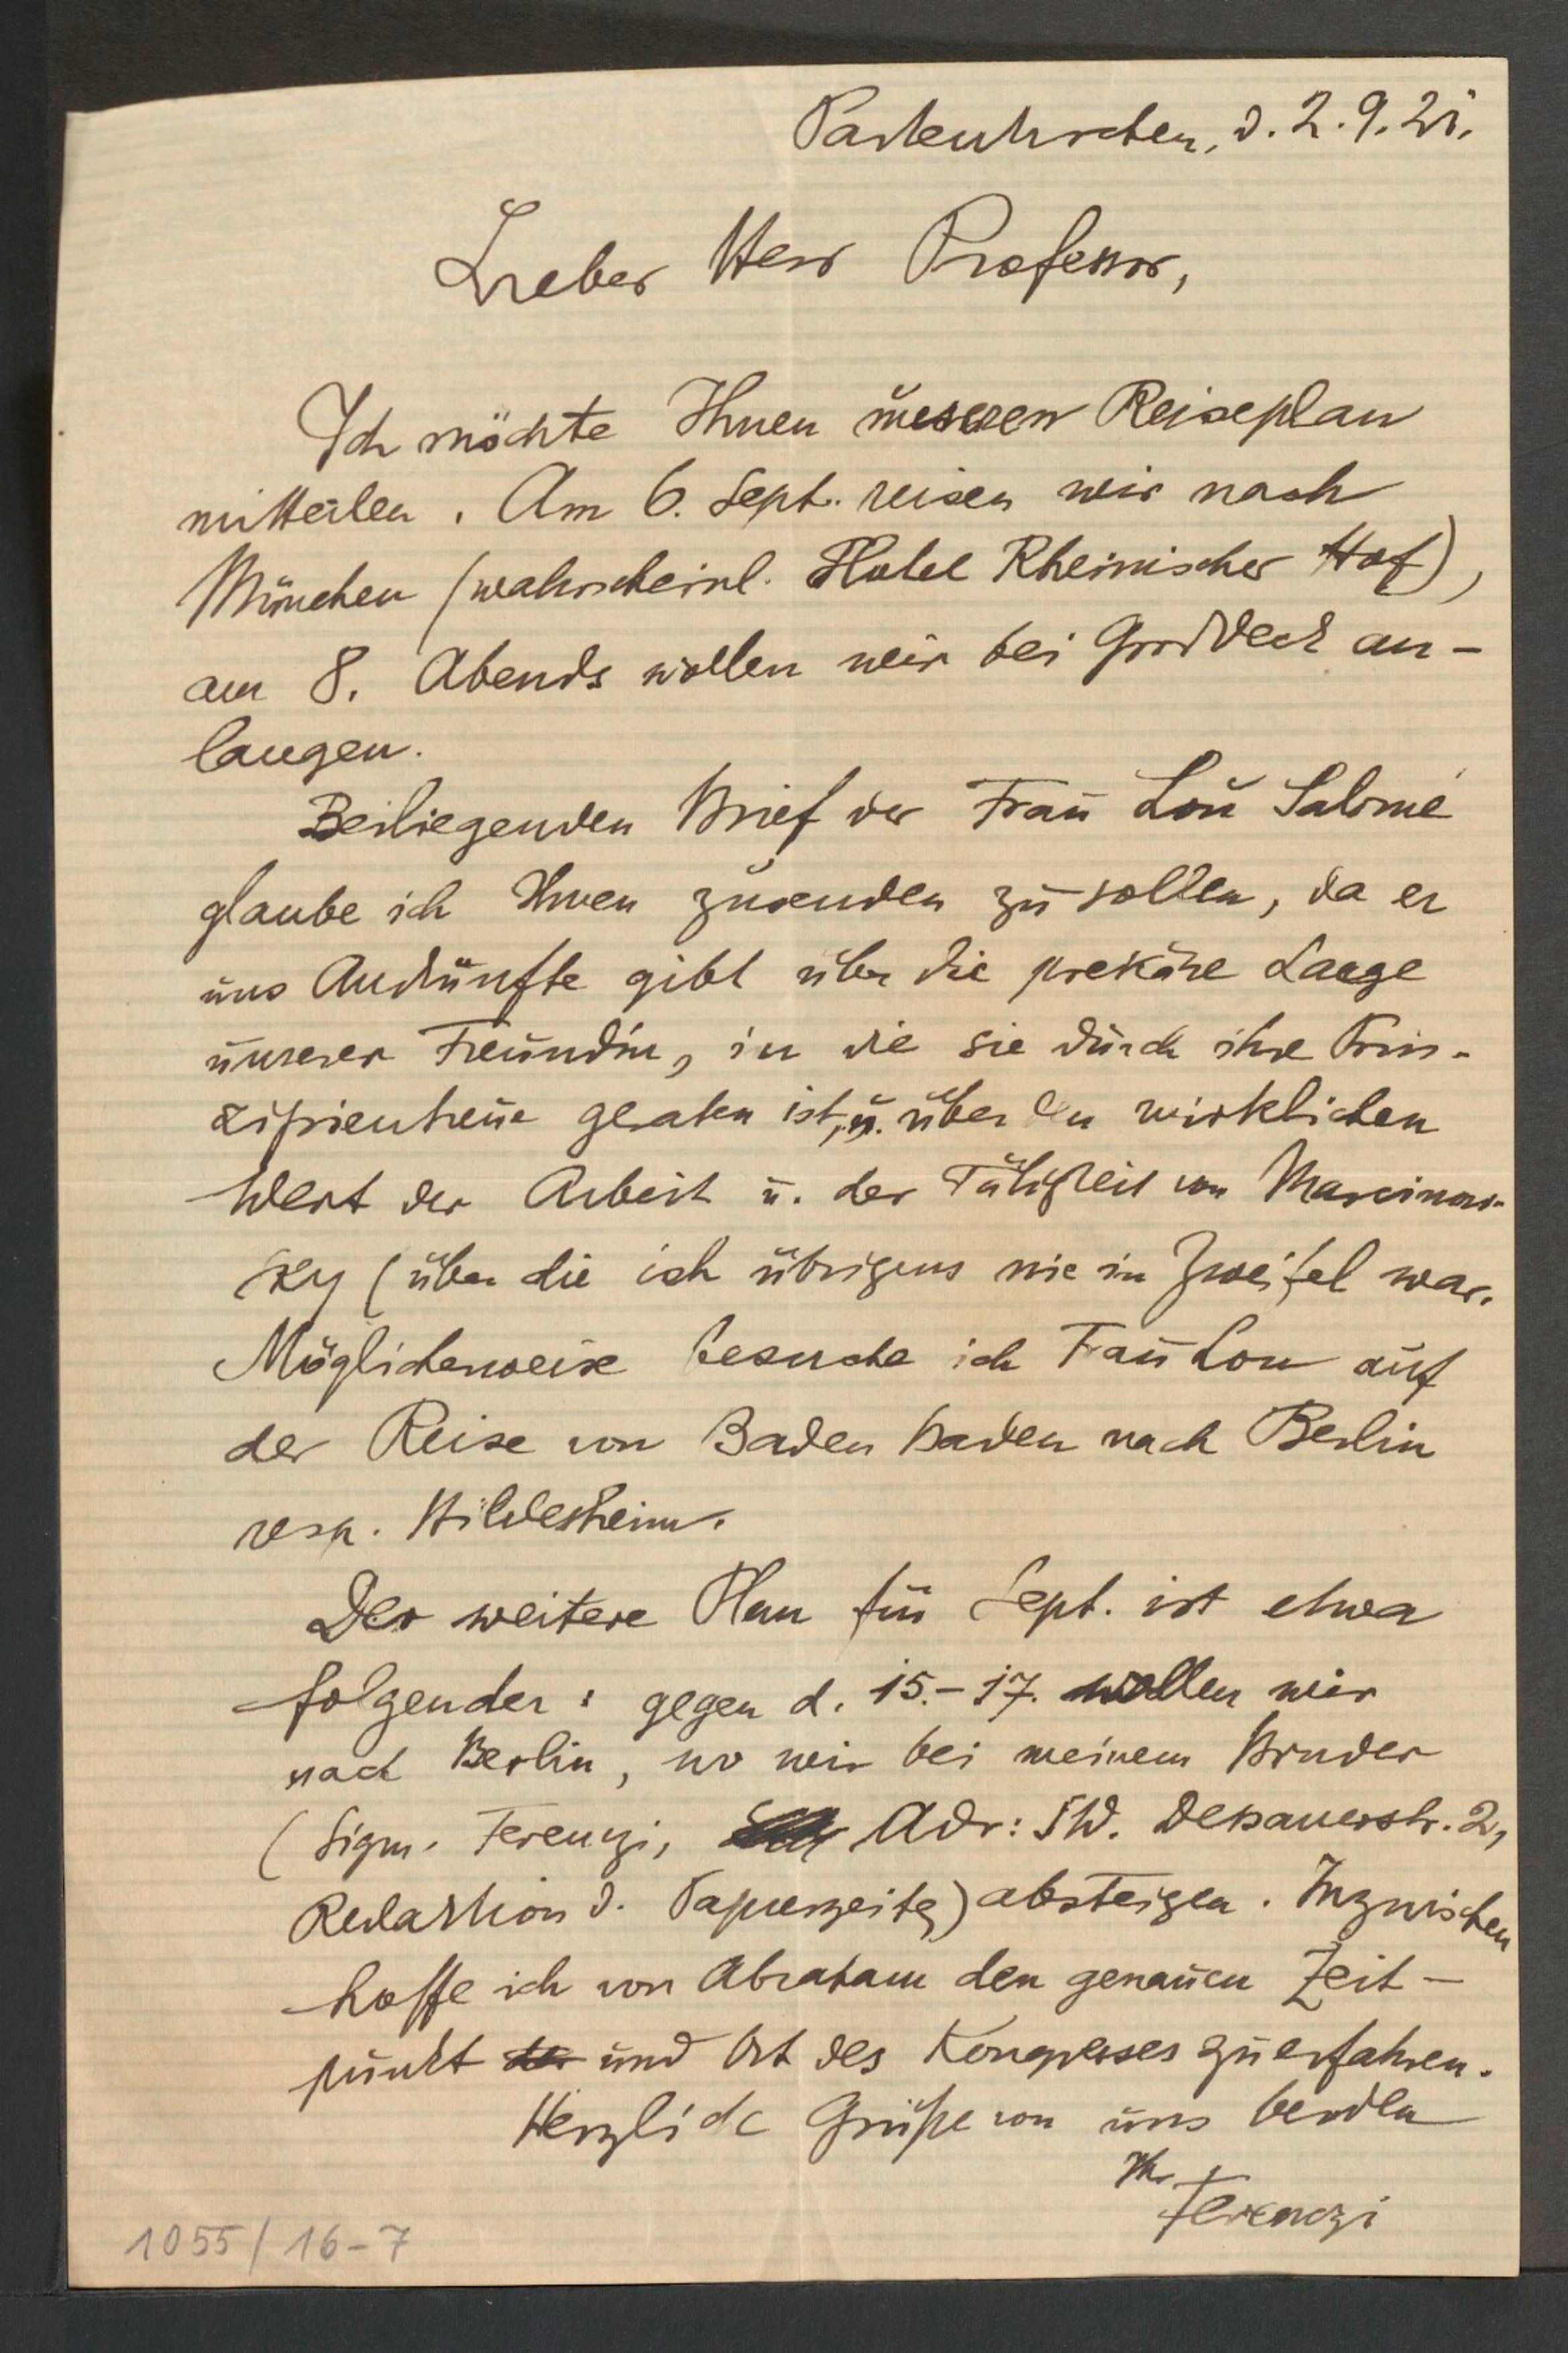 Partenkirchen, d. 2.9.21.
Lieber Herr Professor,
Ich möchte Ihnen unseren Reiseplan
mitteilen. Am 6. Sept. reisen wir nach
München (wahrscheinl. Hotel Rheinischer Hof),
am 8. Abends wollen wir bei Groddeck an-
langen.
Beiliegenden Brief der Frau Lou Salomé
glaube ich Ihnen zusenden zu sollen, da er
uns Auskünfte gibt über die prekäre Laege
unserer Freundin, in die sie durch ihre Prin-
zipientreue geraten ist, u. über den wirklichen
Wert der Arbeit u. der Tätigkeit von Marcinow-
sky (über die ich übrigens nie in Zweifel war.
Möglicherweise besuche ich Frau Lou auf
der Reise von Baden Baden nach Berlin
resp. Hildesheim.
Der weitere Plan für Sept. ist etwa
folgender: gegen d. 15.-17. wollen wir
nach Berlin, wo wir bei meinem Bruder
(Sigm. Ferenczi, Adr: SW. Dessauerstr. 2,
Redaktion d. Papierzeitg) absteigen. Inzwischen
hoffe ich von Abraham den genauen Zeit-
punkt der und Ort des Kongresses zu erfahren.
Herzliche Grüße von uns beiden
Ihr
Ferenczi
1055/16-7